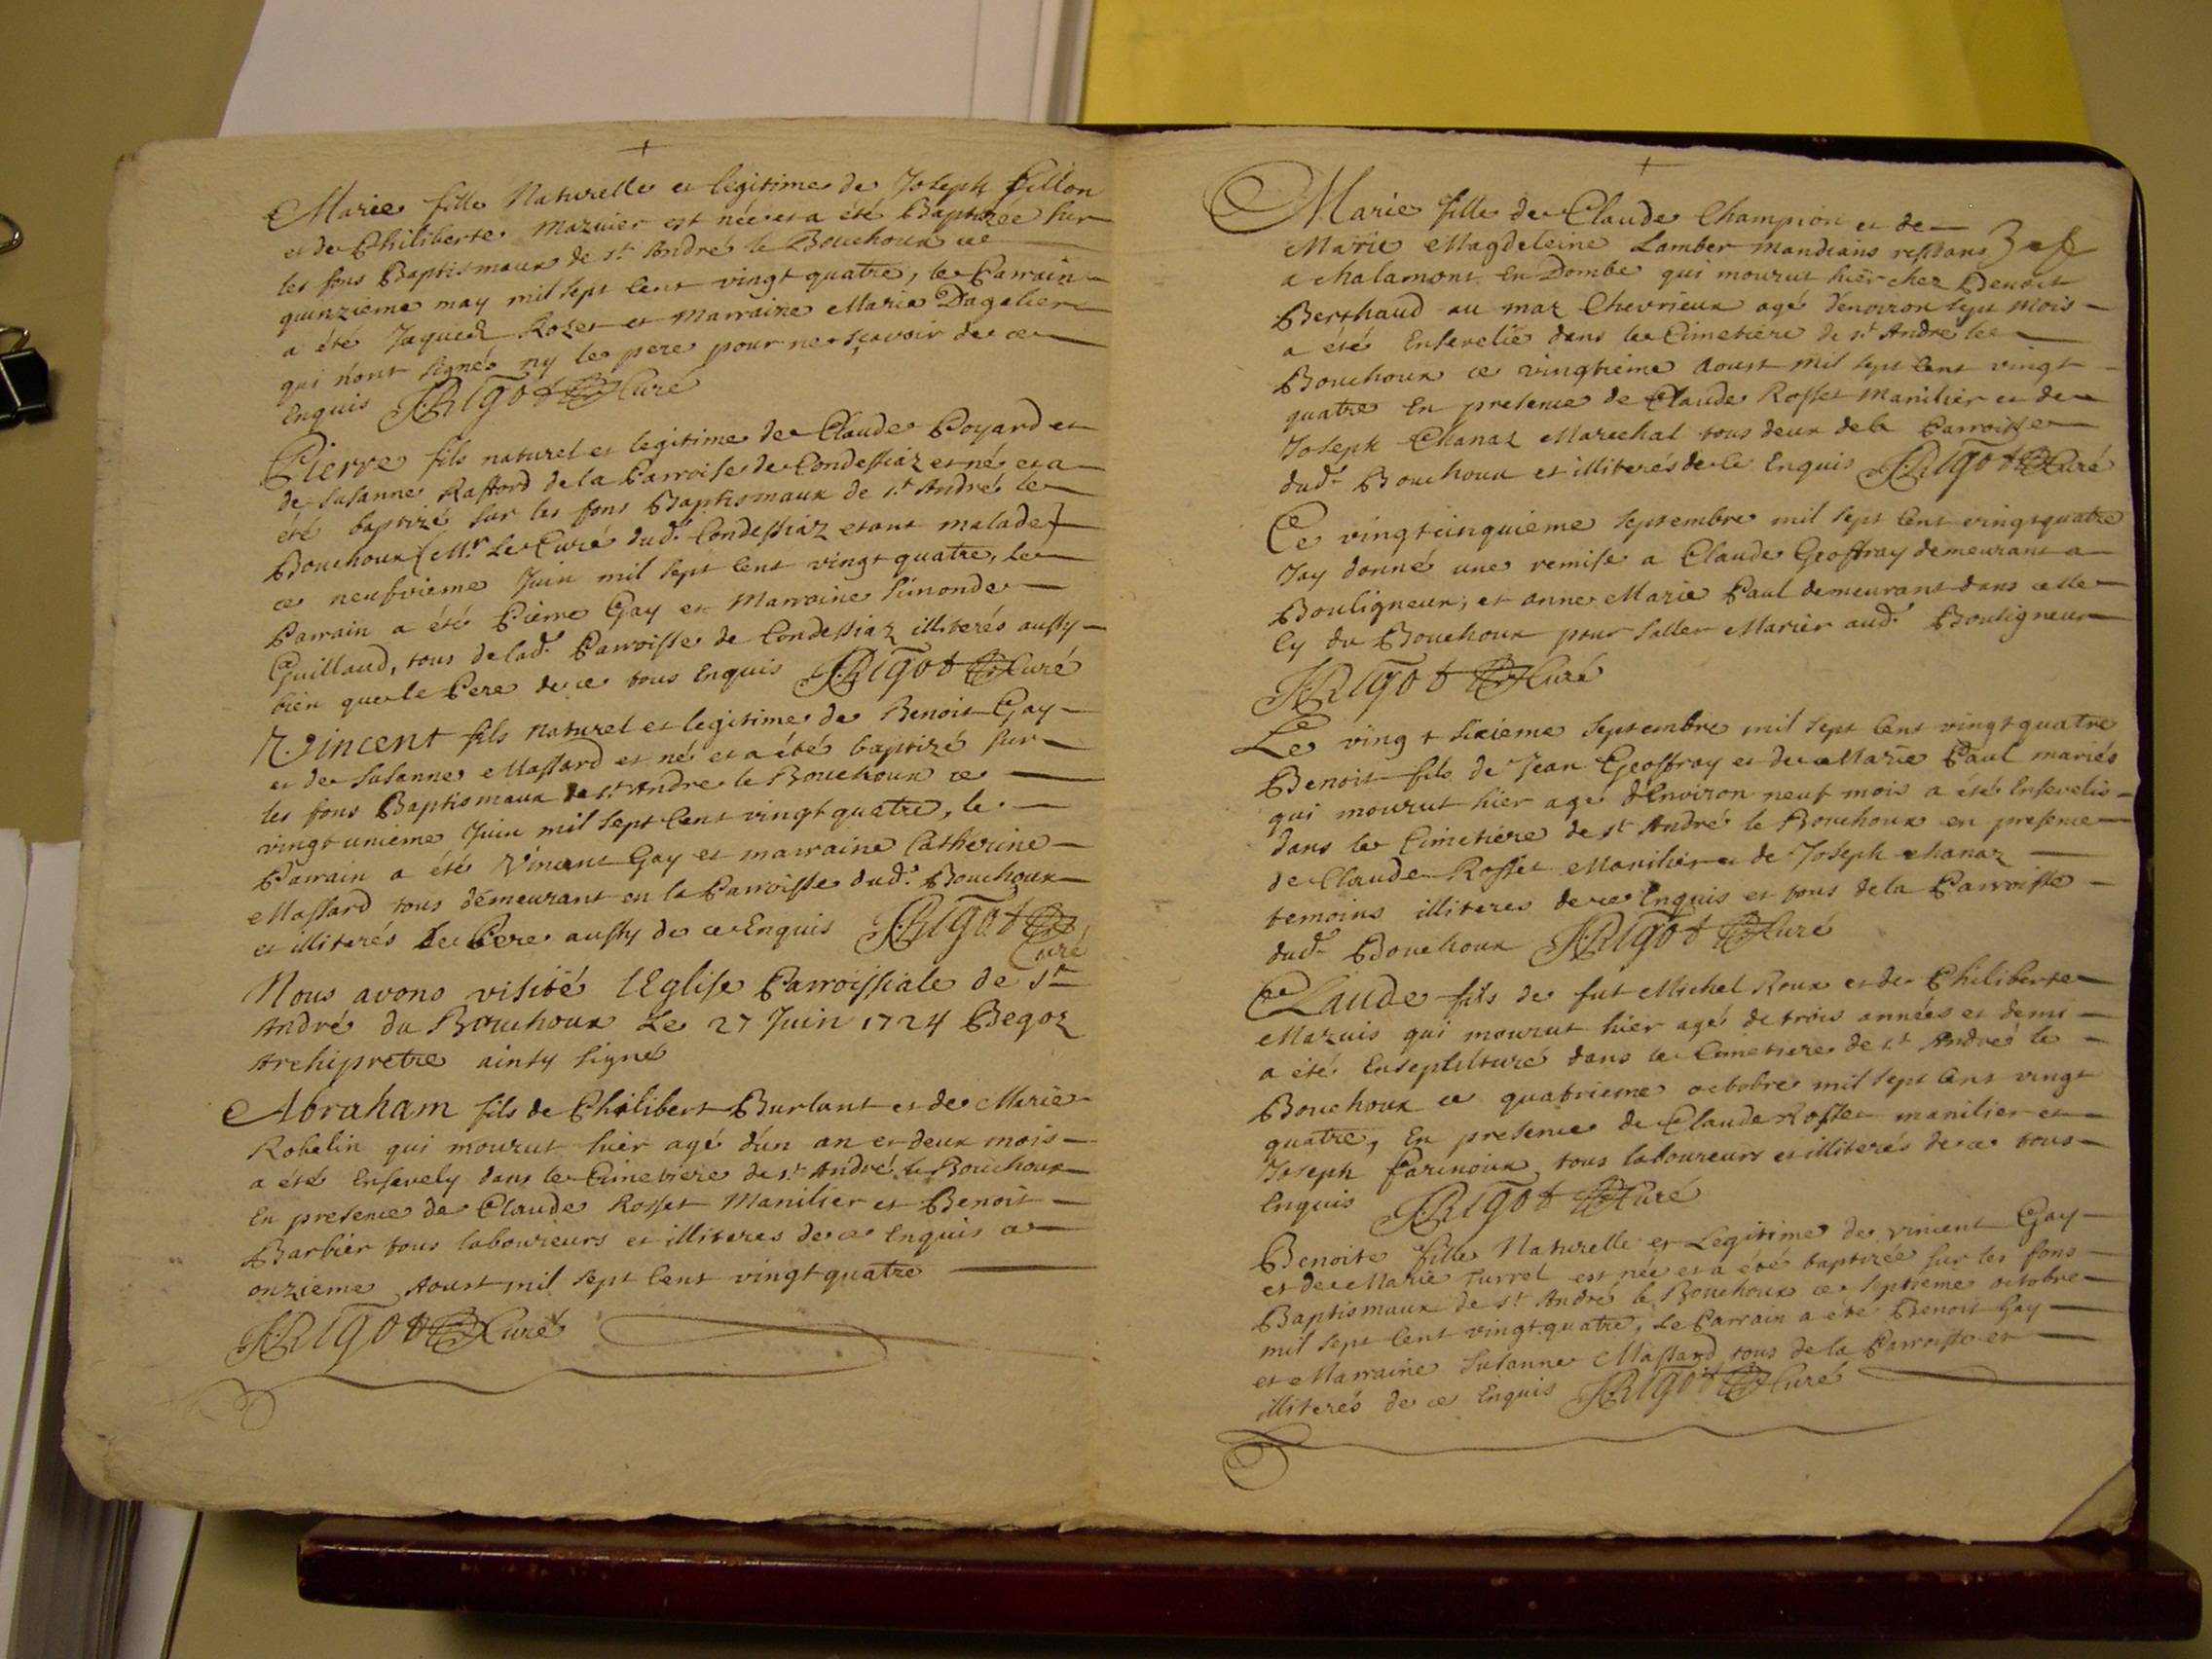 Marie fille Naturelle et legitime de Joseph fillon
et de Philiberte Mazuier est née et a été Baptizée sur
les fons Baptismaux de st André le Bouchoux ce
quinzieme may mil sept Cent vingt quatre, le Parrain
a été Jaques Rozet et Marraine Marie Dagalier
qui n'ont signés ny le pere pour ne sçavoir de ce
Enquis JRigot Curé
Pierre fils naturel et legitime de Claude Poyard et
de Susanne Rafford de la Parroise de Condessiaz et né et a
été baptizé sur les fons Baptismaux de st André le
Bouchoux (Mr Le Curé dud. Condessiaz etant malade)
ce neufvieme Juin mil sept Cent vingt quatre, le
Parrain a été Pierre Gay et Marraine Simonde
Guillaud, tous de lad. Parroisse de Condessiaz illiterés aussy
bien que le Pere de ce tous Enquis JRigot Curé
Vincent fils naturel et legitime de Benoit Gay
et de Susanne Massard et né et a été baptizé sur
les fons Baptismaux de st Andre le Bouchoux ce
vingt unieme Juin mil sept Cent vingt quatre, le
Parrain a été Vincent Gay et marraine Catherine
Massard tous demeurant en la Parroisse dud. Bouchoux
et illiterés Le Pere aussy de ce Enquis JRigot
Curé
Nous avons visité l'Eglise Parroissiale de St
André du Bouchoux Le 27 Juin 1724 Begoz
Archipretre ainsy signé
Abraham fils de Philibert Burlant et de Marie
Robelin qui mourut hier agé d'un an et deux mois
a été Ensevely dans le Cimetiere de st André le Bouchoux
En presence de Claude Rosset Manilier et Benoit
Barbier tous laboureurs et illiteres de ce Enquis ce
onzieme Aoust mil sept Cent vingt quatre
JRigot Curé
Marie fille de Claude Champion et de
Marie Magdeleine Lamber mandians restans
a Chalamont En Dombe qui mourut hier chez Benoit
Berthaud au maz Chevrieux agé d'environ sept mois
a été Ensevelie dans le Cimetiere de st André le
Bouchoux ce vingtieme Aoust mil sept Cent vingt
quatre En presence de Claude Rosset manilier et de
Joseph Chanaz Marechal tous deux de la Parroisse
dud. Bouchoux et illiterés de ce Enquis JRigot Curé
Ce vingt cinquieme septembre mil sept Cent vingt quatre
Jay donné une remise a Claude Geoffray demeurant a
Bouligneux, et anne Marie Paul demeurant dans celle
Cy du Bouchoux pour saller Marier aud. Bouligneux
JRigot Curé
Le vingt sixieme septembre mil sept Cent vingt quatre
Benoit fils de Jean Geoffray et de Marie Paul mariés
qui mourut hier agé d'Environ neuf mois a été Ensevelis
dans le Cimetiere de st André le Bouchoux en presence
de Claude Rosset Manilier et de Joseph Chanaz
temoins illiteres de ce Enquis et tous de la Parroisse
dud. Bouchoux JRigot Curé
Claude fils de fut Michel Roux et de Philiberte
Mazuis qui mourut hier agé de trois années et demi
a été Ensepulturé dans le Cimetiere de st André le
Bouchoux ce quatrieme octobre mil sept Cent vingt
quatre, En presence de Claude Rosset manilier et
Joseph Parinoux tous laboureurs et illiterés de ce tous
Enquis JRigot Curé
Benoite fille Naturelle et Legitime de vincent Gay
et de Marie Turrel est née et a été baptizée sur les fons
Baptismaux de st André le Bouchoux ce septieme octobre
mil sept Cent vingt quatre, Le Parrain a été Benoit Gay
et Marraine Susanne Massard tous de la Parroisse et
illiterés de ce Enquis JRigot Curé